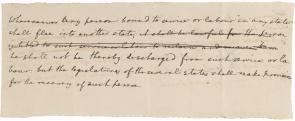 Whensoever any person bound to service or labour in any state
shall flee into another state, it shall be lawful for the person
entitled to such service or labour to reclaim and secure him
he shall not be thereby discharged from such service or la-
bour: but the legislatures of the several states shall make provision
for the recovery of such person